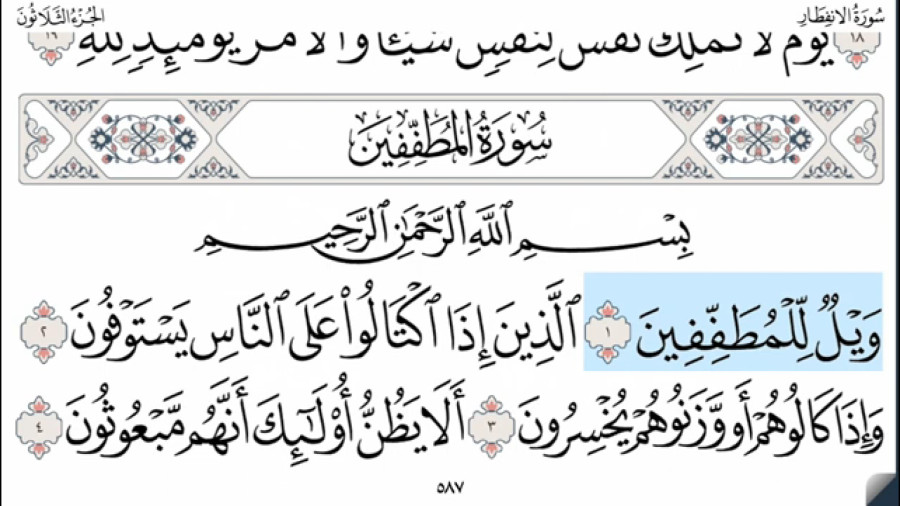 سُورَةُ الانفِطَارِ
الجُزْءُ الثَّلَاثُونَ
١٨ يَوْمَ لَا تَمْلِكُ نَفْسٌ لِّنَفْسٍ شَيْئًا وَالْأَمْرُ يَوْمَئِذٍ لِّلَّهِ
سُورَةُ المُطَفِّفِينَ
بِسْمِ ٱللَّهِ ٱلرَّحْمَٰنِ ٱلرَّحِيمِ
وَيْلٌ لِّلْمُطَفِّفِينَ ١ ٱلَّذِينَ إِذَا ٱكْتَالُوا۟ عَلَى ٱلنَّاسِ يَسْتَوْفُونَ ٢
وَإِذَا كَالُوهُمْ أَو وَّزَنُوهُمْ يُخْسِرُونَ ٣ أَلَا يَظُنُّ أُو۟لَٰٓئِكَ أَنَّهُم مَّبْعُوثُونَ ٤
٥٨٧